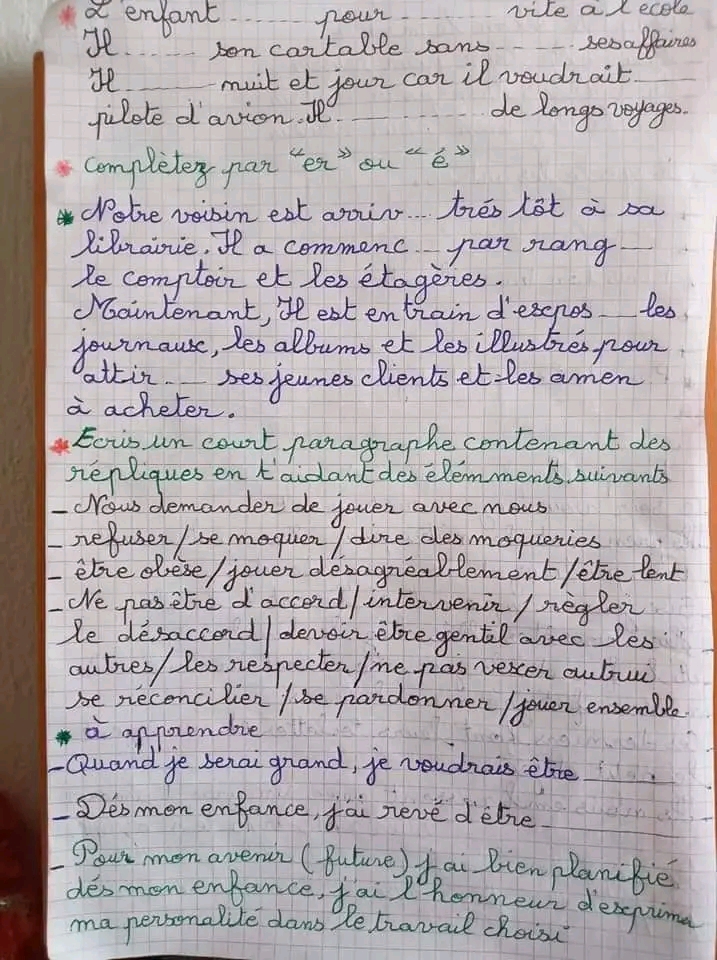 * L'enfant ........ pour ........ vite à l'école
Il ........ son cartable sans ........ ses affaires
Il ........ nuit et jour car il voudrait ........
pilote d'avion. Il ........ de longs voyages.
* Complètez par "er" ou "é"
* Notre voisin est arriv... trés tôt à sa
librairie. Il a commenc ... par rang ...
le comptoir et les étagères.
Maintenant, Il est entrain d'expos ... les
journaux, les albums et les illustrés pour
attir ... ses jeunes clients et les amen
à acheter.
* Ecris un court paragraphe contenant des
répliques en t'aidant des élémments suivants
- Nous demander de jouer avec nous
- refuser/se moquer/dire des moqueries
- être obèse/jouer désagréablement/être lent
- Ne pas être d'accord/intervenir/règler
le désaccord/devoir être gentil avec les
autres/les respecter/ne pas vexer autrui
se réconcilier/se pardonner/jouer ensemble.
* à apprendre
- Quand je serai grand, je voudrais être ........
- Dés mon enfance, j'ai revé d'être ........
- Pour mon avenir (future) j'ai bien planifié
dés mon enfance, j'ai l'honneur d'exprima
ma personalité dans le travail choisi